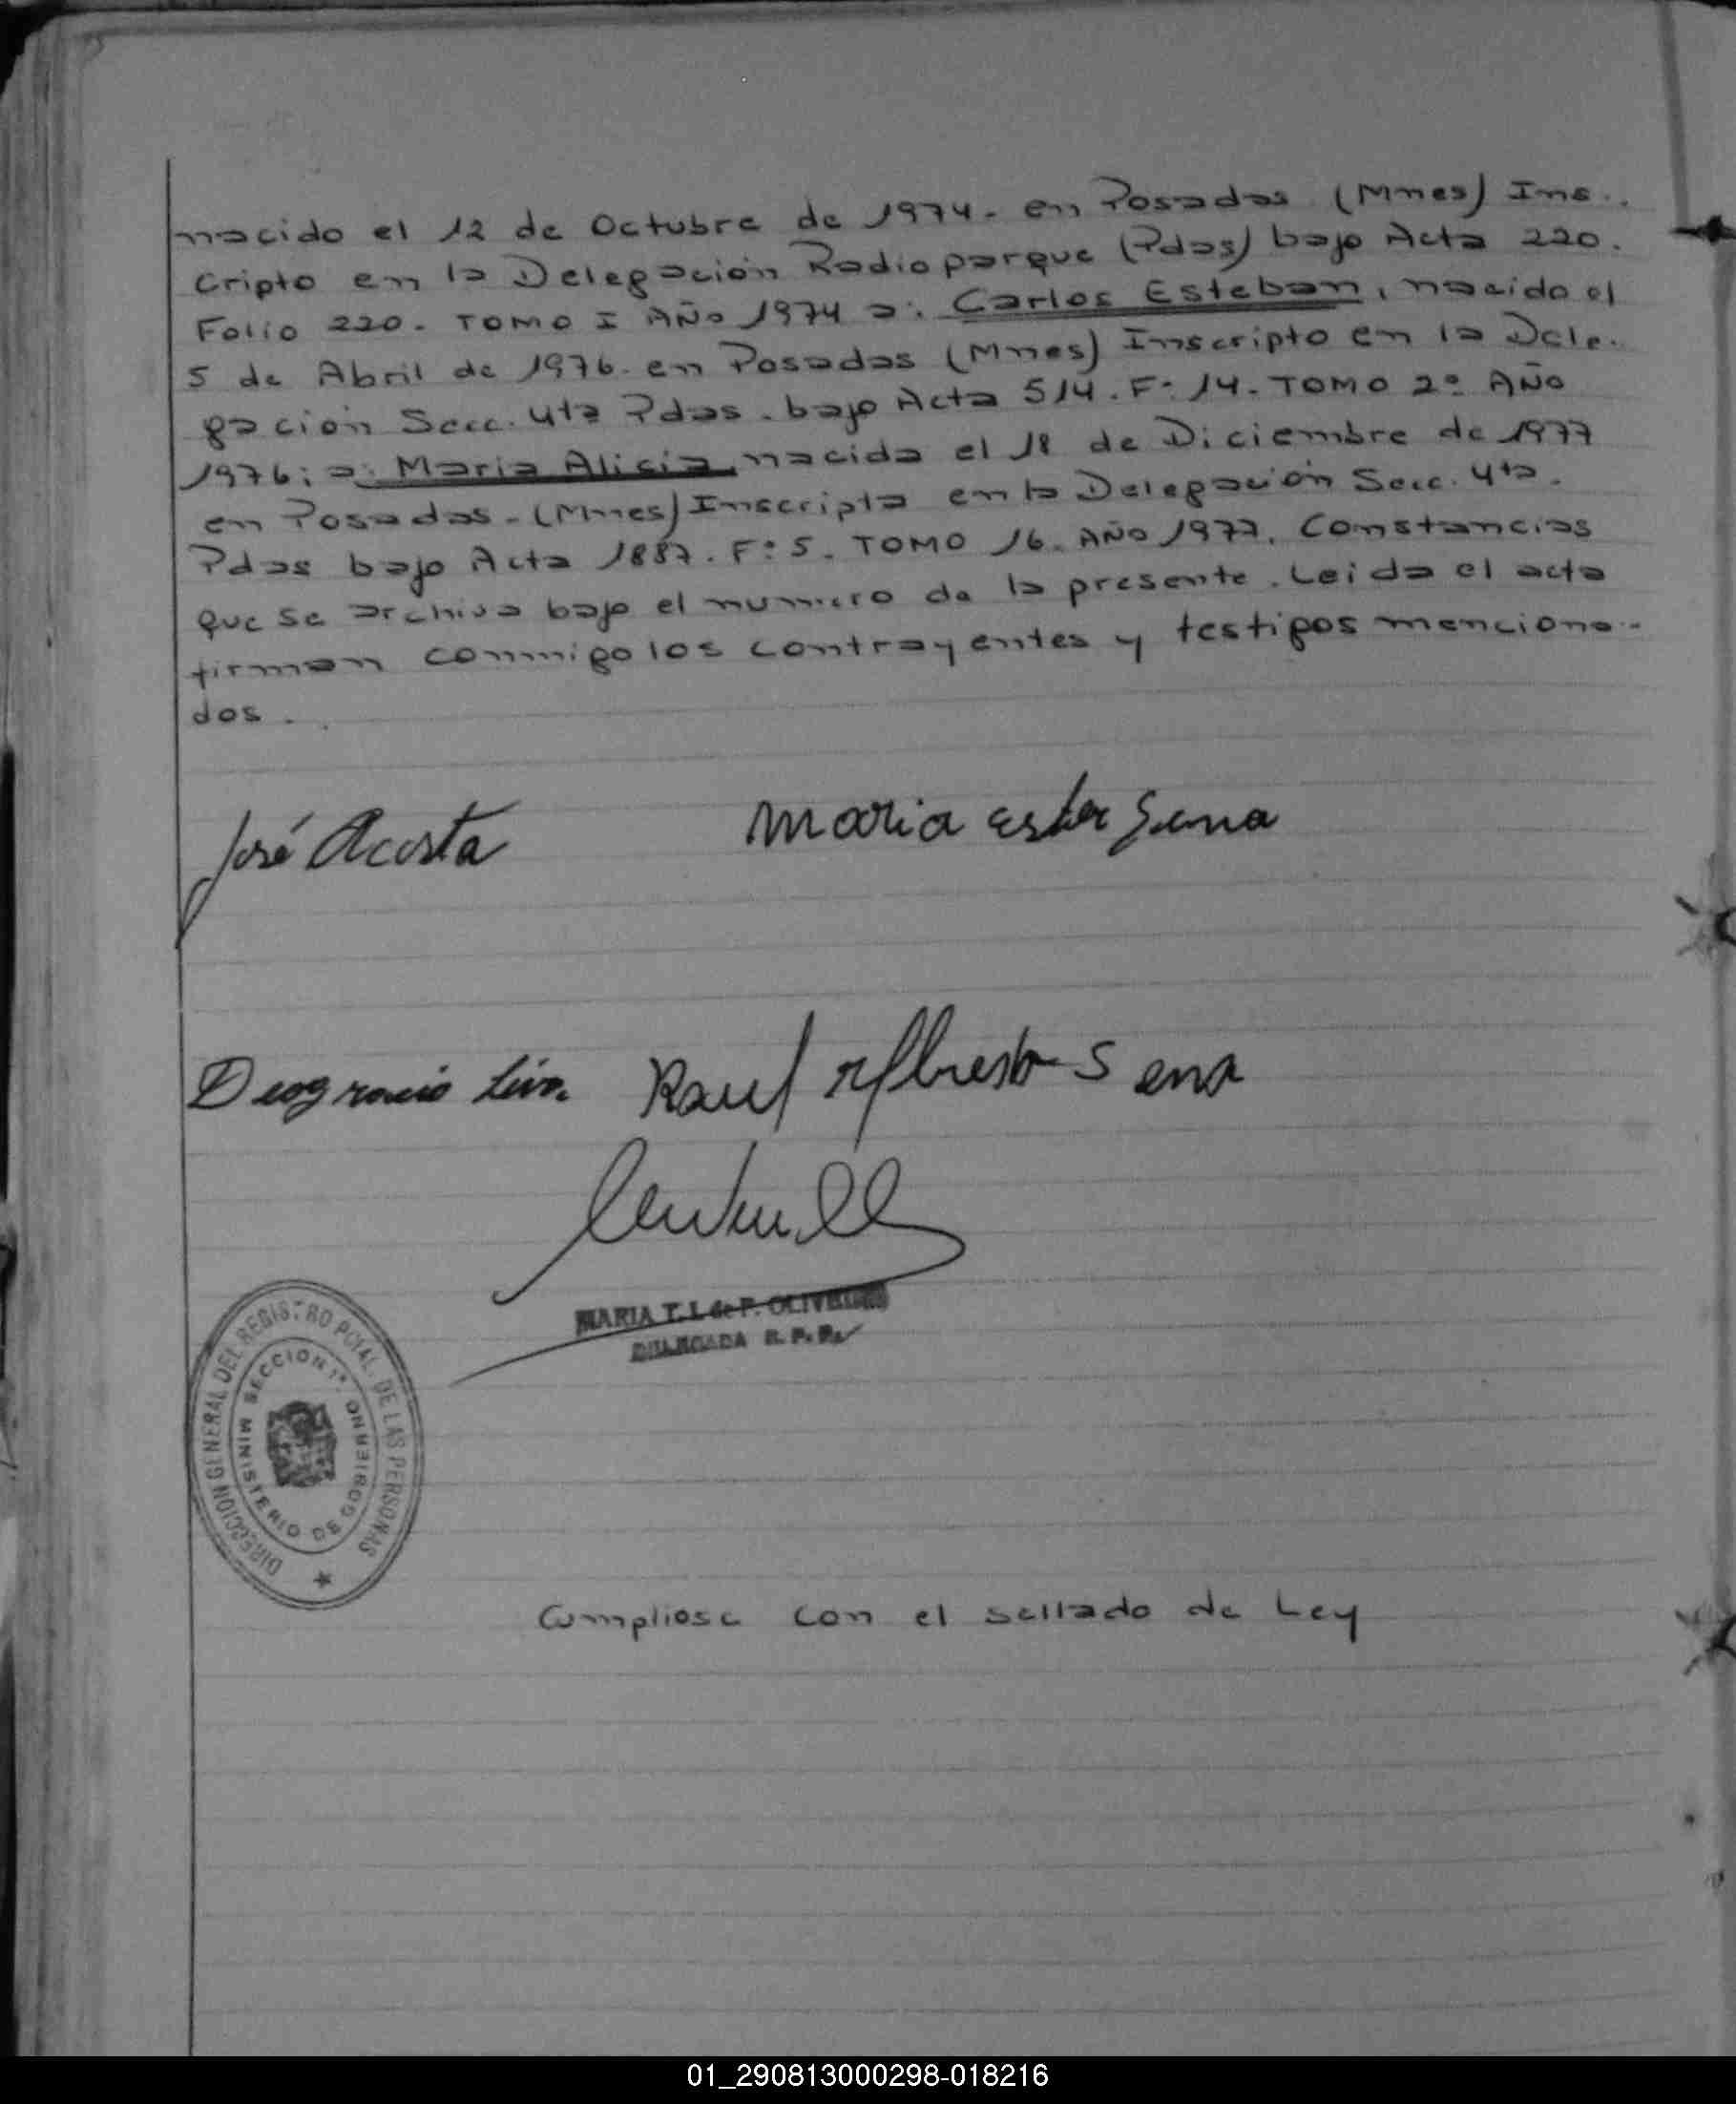 nacido el 12 de Octubre de 1974. en Posadas (Mnes) Ins..
cripto en la Delegación Radioparque (Pdas) bajo Acta 220.
Folio 220. TOMO I AÑO 1974 a: Carlos Esteban, nacido el
5 de Abril de 1976. en Posadas (Mnes) Inscripto en la Dele.
gación Secc. 4ta Pdas. bajo Acta 514. Fº 14. TOMO 2º AÑO
1976; a: Maria Alicia, nacida el 18 de Diciembre de 1977
en Posadas. (Mnes) Inscripta en la Delegación Secc. 4ta.
Pdas bajo Acta 1887. Fº 5. TOMO 16. AÑO 1977. Constancias
que se archiva bajo el numero de la presente. Leida el acta
firman conmigo los contrayentes y testigos menciona-
dos.
José Acosta
Maria Ester Sena
Deogracio
Raul Alberto Sena
MARIA T. I. de P. OLIVEIRA
DELEGADA R. P. P.
DIRECCION GENERAL DEL REGISTRO PCIAL. DE LAS PERSONAS
SECCION 1ª
MINISTERIO DE GOBIERNO
Cumpliose con el sellado de Ley
01_290813000298-018216